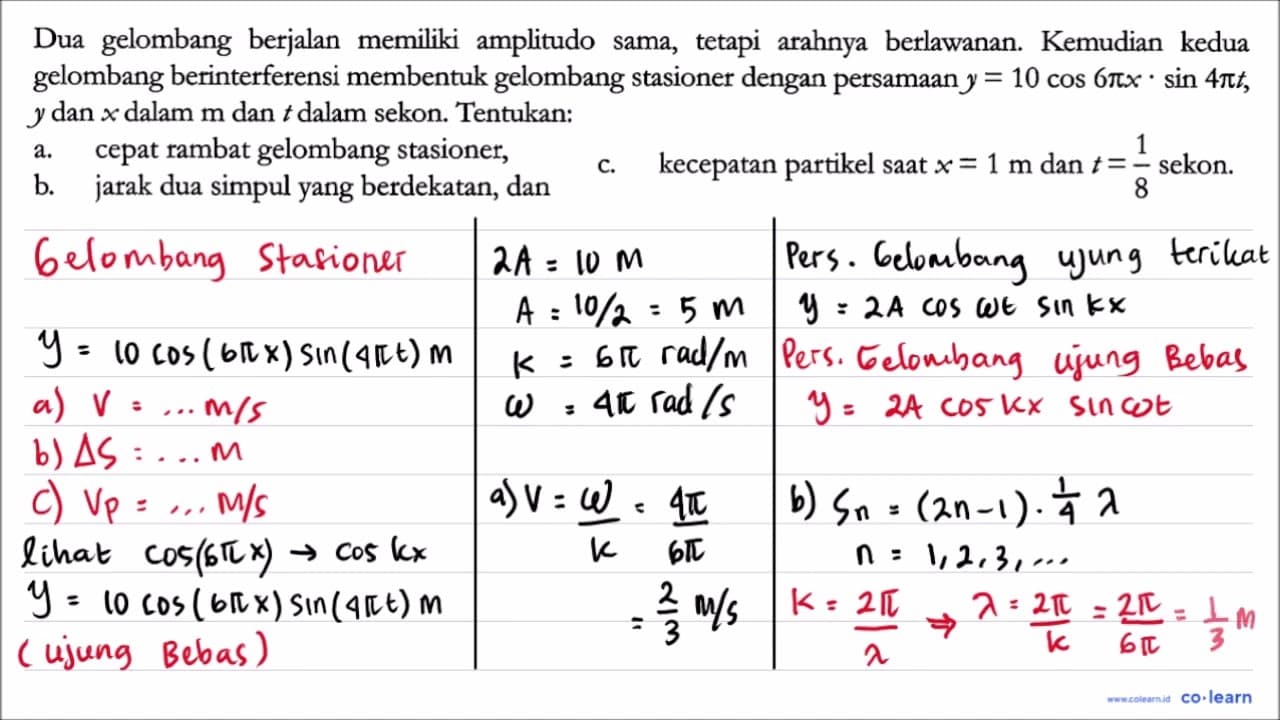 Dua gelombang berjalan memiliki amplitudo sama, tetapi arahnya berlawanan. Kemudian kedua
gelombang berinterferensi membentuk gelombang stasioner dengan persamaan y = 10 cos 6πx · sin 4πt,
y dan x dalam m dan t dalam sekon. Tentukan:
a. cepat rambat gelombang stasioner,
b. jarak dua simpul yang berdekatan, dan
c. kecepatan partikel saat x = 1 m dan t = 1/8 sekon.
Gelombang Stasioner
y = 10 cos(6πx) sin(4πt) m
a) v = ... m/s
b) ΔS = ... m
c) Vp = ... m/s
lihat cos(6πx) → cos kx
y = 10 cos(6πx) sin(4πt) m
(ujung Bebas)
2A = 10 m
A = 10/2 = 5 m
k = 6π rad/m
ω = 4π rad/s
a) V = ω/k = 4π/6π
= 2/3 m/s
Pers. Gelombang ujung terikat
y = 2A cos ωt sin kx
Pers. Gelombang ujung Bebas
y = 2A cos kx sin ωt
b) Sn = (2n-1) · 1/4 λ
n = 1, 2, 3, ...
k = 2π/λ ⇒ λ = 2π/k = 2π/6π = 1/3 m
www.colearn.id co·learn